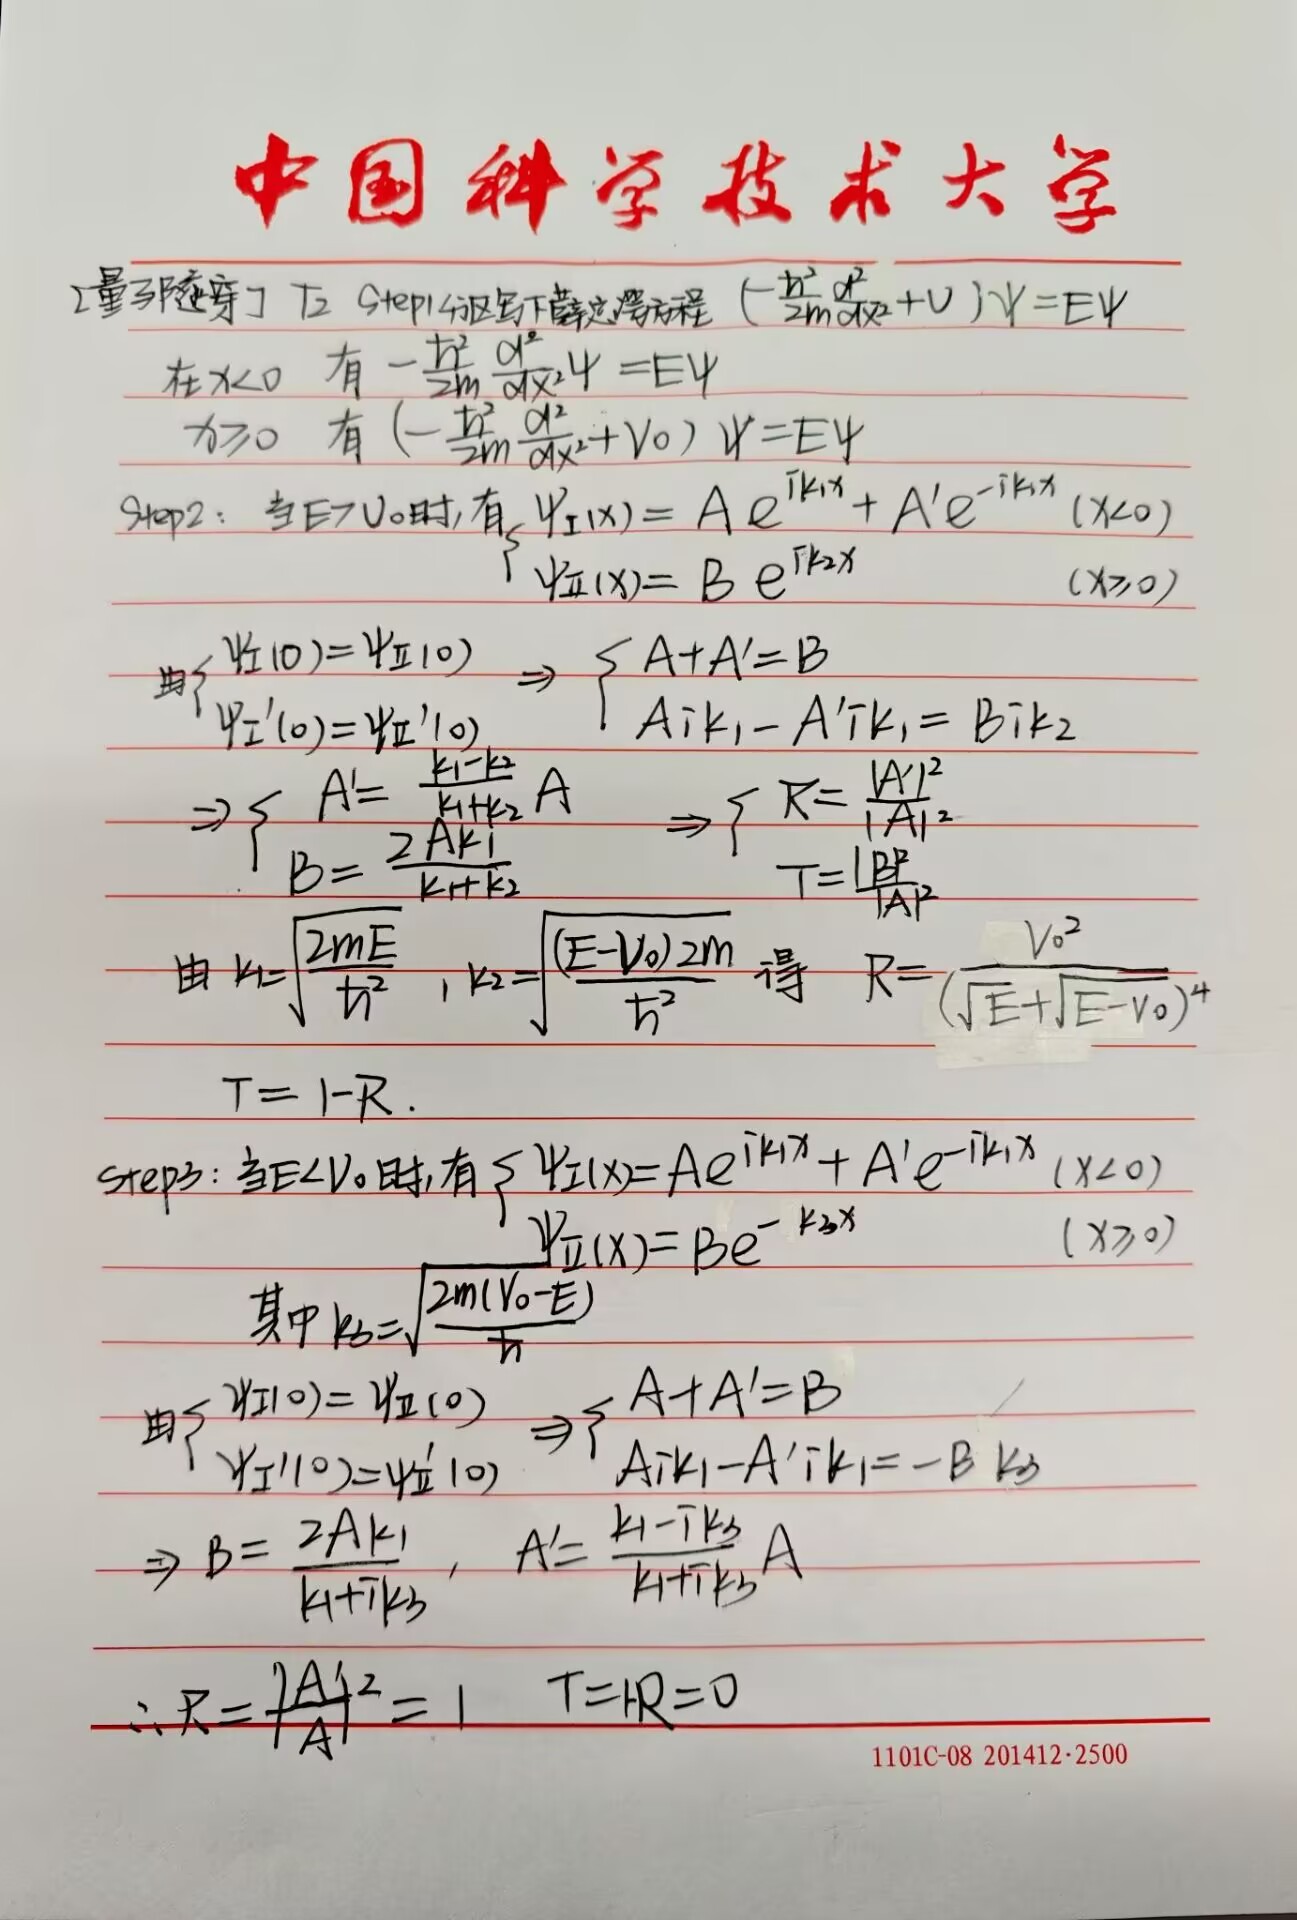 中国科学技术大学
[量子隧穿] T2 Step1 分区写下薛定谔方程 (-ħ²/2m d²/dx² + U)ψ=Eψ
在x<0 有 -ħ²/2m d²/dx² ψ=Eψ
x≥0 有 (-ħ²/2m d²/dx² + V₀)ψ=Eψ
Step2: 当E>V₀时,有 { ψ_I(x)=Ae^{ik₁x}+A'e^{-ik₁x} (x<0)
ψ_II(x)=Be^{ik₂x} (x≥0)
由{ ψ_I(0)=ψ_II(0) ⇒ { A+A'=B
ψ_I'(0)=ψ_II'(0) Aik₁-A'ik₁=Bik₂
⇒ { A'=(k₁-k₂)/(k₁+k₂) A ⇒ { R=|A'|²/|A|²
B=2Ak₁/(k₁+k₂) T=|B|²/|A|²
由 k₁=√(2mE/ħ²), k₂=√((E-V₀)2m/ħ²) 得 R=V₀²/(√E+√(E-V₀))⁴
T=1-R.
Step3: 当E<V₀时,有 { ψ_I(x)=Ae^{ik₁x}+A'e^{-ik₁x} (x<0)
ψ_II(x)=Be^{-k₃x} (x≥0)
其中 k₃=√(2m(V₀-E)/ħ)
由{ ψ_I(0)=ψ_II(0) ⇒ { A+A'=B
ψ_I'(0)=ψ_II'(0) Aik₁-A'ik₁=-Bk₃
⇒ B=2Ak₁/(k₁+ik₃), A'=(k₁-ik₃)/(k₁+ik₃) A
∴R=|A'/A|²=1 T=1-R=0
1101C-08 201412·2500